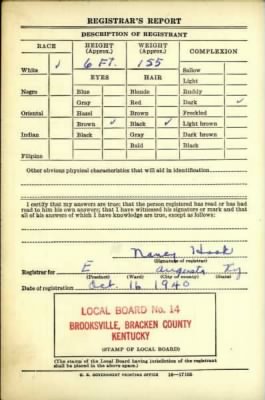 REGISTRAR'S REPORT
DESCRIPTION OF REGISTRANT
RACE HEIGHT (Approx.) WEIGHT (Approx.) COMPLEXION
White ✓ 6 FT. 155 Sallow
EYES HAIR Light
Negro Blue Blonde Ruddy
Gray Red Dark ✓
Oriental Hazel Brown Freckled
Brown ✓ Black ✓ Light brown
Indian Black Gray Dark brown
Bald Black
Filipino
Other obvious physical characteristics that will aid in identification
I certify that my answers are true; that the person registered has read or has had
read to him his own answers; that I have witnessed his signature or mark and that
all of his answers of which I have knowledge are true, except as follows:
Nancy Hook
(Signature of registrar)
Registrar for E Augusta Ky
(Precinct) (Ward) (City or county) (State)
Date of registration Oct. 16 1940
LOCAL BOARD No. 14
BROOKSVILLE, BRACKEN COUNTY
KENTUCKY
(STAMP OF LOCAL BOARD)
(The stamp of the Local Board having jurisdiction of the registrant
shall be placed in the above space.)
U. S. GOVERNMENT PRINTING OFFICE 16—17105